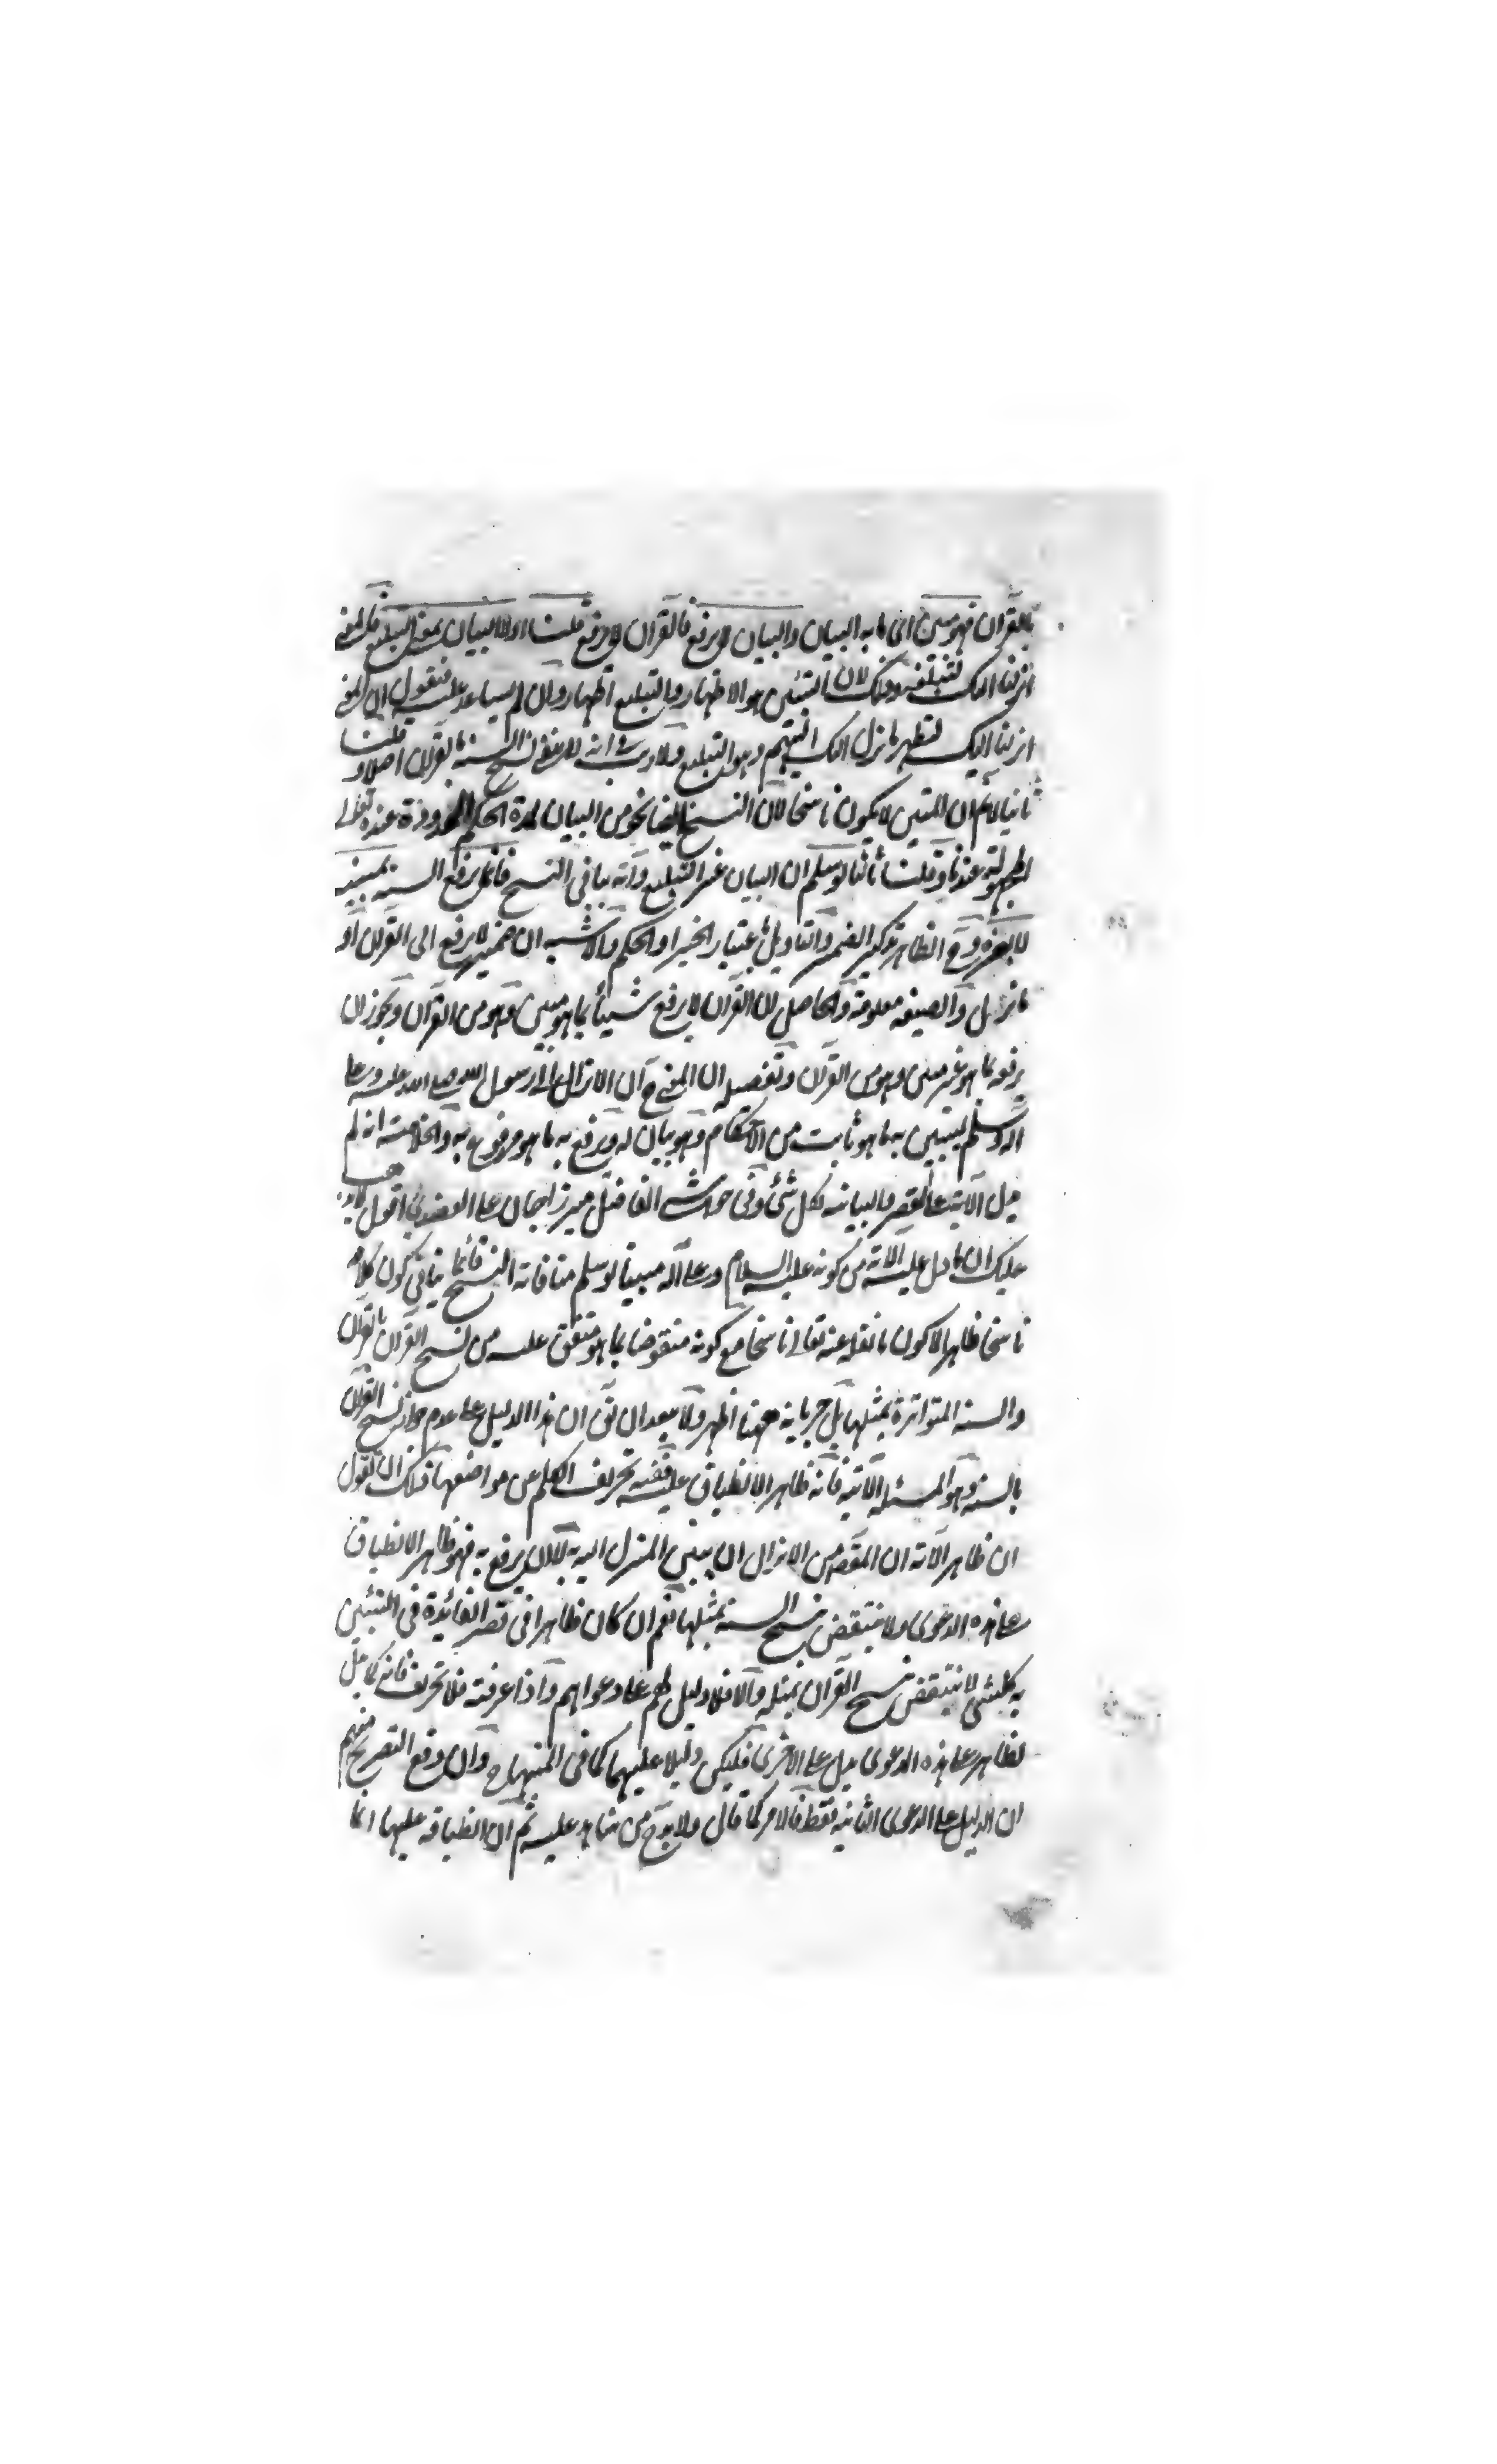 بالقرآن فهو مبين اى ما به البيان والبيان لا يرفع فالقرآن لا يرفع قلت اولا البيان بمعنى التبليغ فالمعنى
انزلنا اليك لتبلغه وذلك لان التبيين هو الاظهار والتبليغ اظهار وان لم يساعد عليه فنقول ان المعنى
انزلنا اليك لتظهر ما نزل اليك اليهم وهو التبليغ ولا ريب فى انه لا ينفى نسخ السنة بالقرآن اصلا وقلت
ثانيا لانم ان المبين لا يكون ناسخا لان النسخ ايضا نحو من البيان لمدة الحكم عنده تعالى
المجهولة عندنا وقلت ثالثا لو سلم ان البيان غير التبليغ وانه ينافى النسخ فانما يرفع السنة بمبينه
لا بغيره وح الظاهر تذكير الضمير والتاويل باعتبار الخبر او الحكم والاشبه ان ضمير لا يرفع الى القرآن او
ما نزل والصيغة معلومة والحاصل ان القرآن لا يرفع شيئا بما هو مبين وهو من القرآن ويجوز ان
يرفعه بما هو غير مبين وهو من القرآن وتفصيله ان المعنى ح ان الانزال الى رسول الله صلى الله عليه وعلى
اله وسلم ليتبين به ما هو ثابت من الاحكام وهو بيان له ويرفع به ما هو مرفوع به والخلاصة انه لم
يدل الآية على القصر والبيانية لكل شئ وفى حواشى الفاضل ميرزا جان على العضدى اقول
عليك ان ما دل عليه الآية من كونه عليه السلام وعلى آله مبينا لو سلم منافاته النسخ فانما ينافى كون كلامه
ناسخا ظاهرا لا كون ما نقله عنه تعالى ناسخا مع كونه منقوضا بما هو متفق عليه من نسخ القرآن بالقرآن
والسنة المتواترة بمثلها بل جريانه ههنا اظهر ولا يبعد ان يق ان هذا الدليل على عدم جواز نسخ القرآن
بالسنة وهو المسئلة الآتية فانه ظاهر الانطباق عليه ففيه تحريف الكلم عن مواضعها ولك ان تقول
ان ظاهر الآية ان المقصود من الانزال ان يبين المنزل اليه به لا ان يرفع به فهو ظاهر الانطباق
على هذه الدعوى ولا ينتقض بنسخ السنة بمثلها نعم ان كان ظاهرا فى قصر الفائدة فى التبيين
به كلشئ لا ينتقض بنسخ القرآن بمثله والا فلا دليل لهم على دعواهم واذا عرفته فلا تحريف فانه كما يدل
لظاهر على هذه الدعوى يدل على الاخرى فليكن دليلا عليهما كما فى المنهاج وان وقع التصريح منهم
ان الدليل على الدعوى الثانية فقط فالامر كما قال ولا بد ح من شاهد عليه ثم ان انطباقه عليها انما